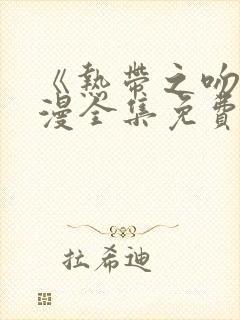 《熱帶之吻
漫全集免費
拉希迪